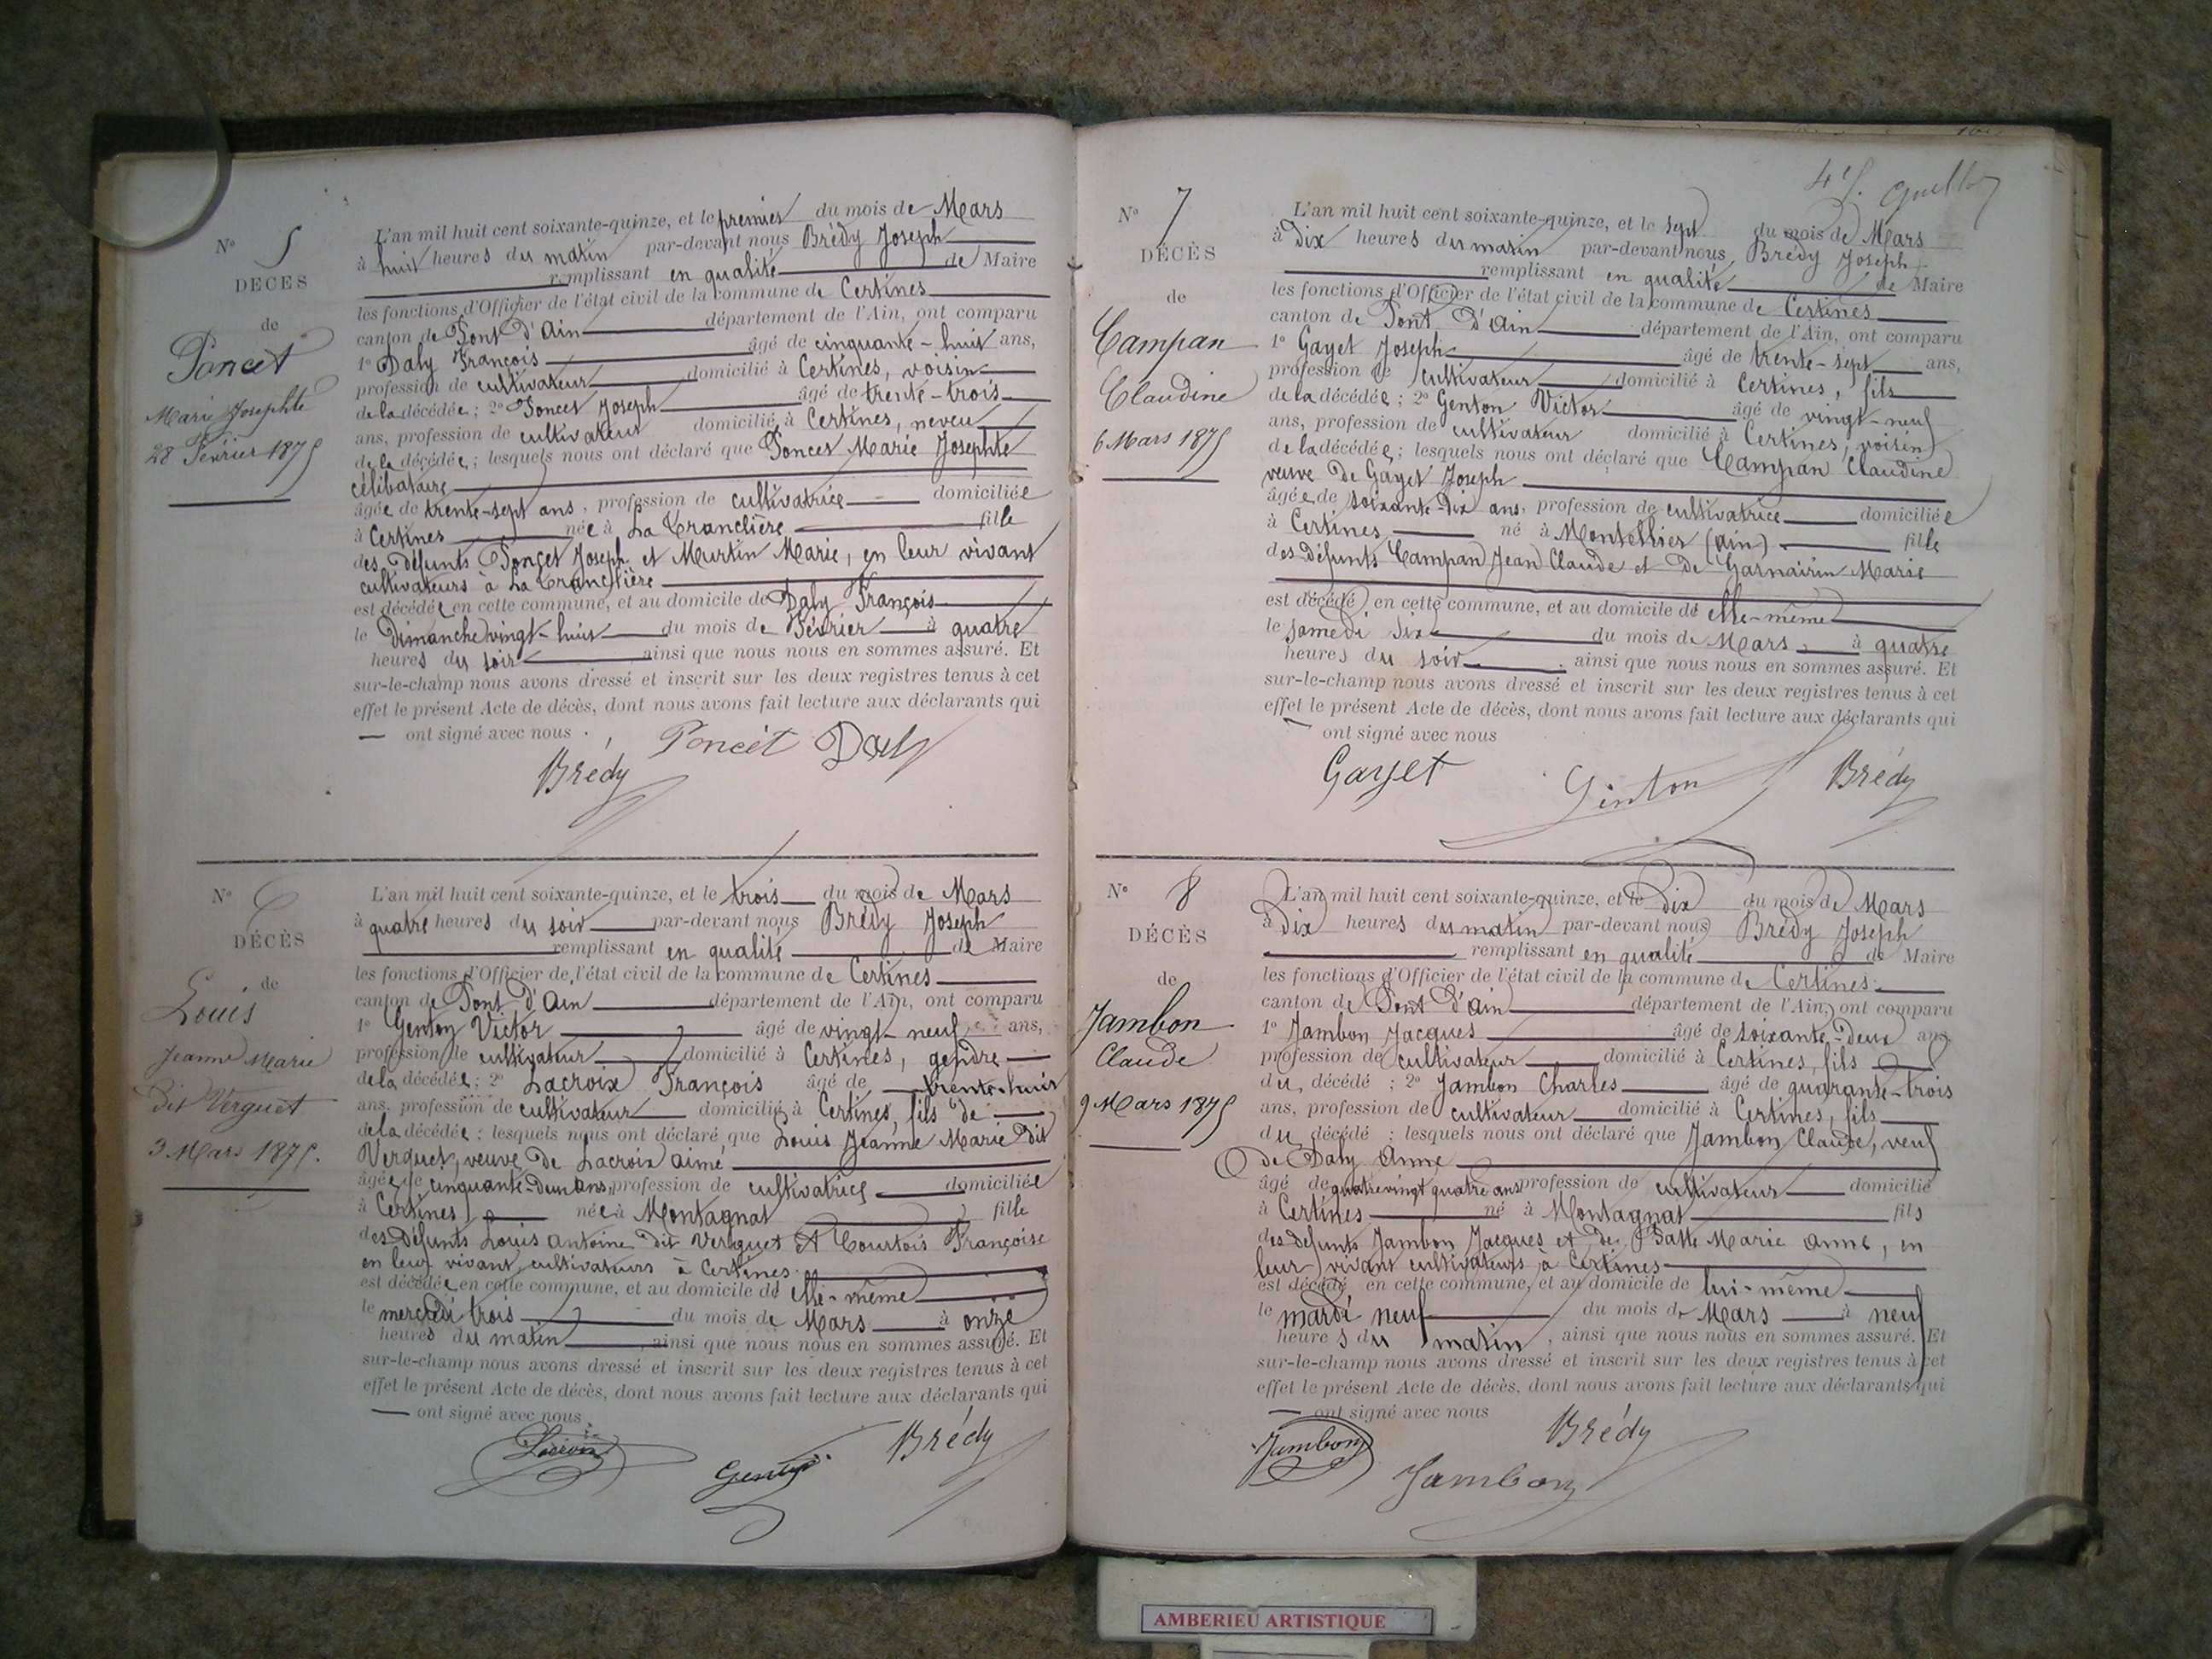 N° 5
DÉCÈS
de
Poncet
Marie Josephte
28 Février 1875
L'an mil huit cent soixante-quinze, et le premier du mois de Mars
à huit heures du matin par-devant nous Brédy Joseph
remplissant en qualité de Maire
les fonctions d'Officier de l'état civil de la commune de Certines
canton de Pont d'Ain département de l'Ain, ont comparu
1° Daly François âgé de cinquante-huit ans,
profession de cultivateur domicilié à Certines, voisin
de la décédée; 2° Poncet Joseph âgé de trente-trois
ans, profession de cultivateur domicilié à Certines, neveu
de la décédée; lesquels nous ont déclaré que Poncet Marie Josephte
célibataire
âgée de trente-sept ans, profession de cultivatrice domiciliée
à Certines née à La Tranclière fille
des défunts Poncet Joseph et Murtin Marie, en leur vivant
cultivateurs à La Tranclière
est décédée en cette commune, et au domicile de Daly François
le Dimanche vingt-huit du mois de Février à quatre
heures du soir ainsi que nous nous en sommes assuré. Et
sur-le-champ nous avons dressé et inscrit sur les deux registres tenus à cet
effet le présent Acte de décès, dont nous avons fait lecture aux déclarants qui
ont signé avec nous
Poncet Daly
Brédy
N° 6
DÉCÈS
de
Louis
Jeanne Marie
dit Verguet
3 Mars 1875.
L'an mil huit cent soixante-quinze, et le trois du mois de Mars
à quatre heures du soir par-devant nous Brédy Joseph
remplissant en qualité de Maire
les fonctions d'Officier de l'état civil de la commune de Certines
canton de Pont d'Ain département de l'Ain, ont comparu
1° Genton Victor âgé de vingt-neuf ans,
profession de cultivateur domicilié à Certines, gendre
de la décédée; 2° Lacroix François âgé de trente-huit
ans, profession de cultivateur domicilié à Certines, fils de
de la décédée; lesquels nous ont déclaré que Louis Jeanne Marie dit
Verguet, veuve de Lacroix aimé
âgée de cinquante-deux ans, profession de cultivatrice domiciliée
à Certines née à Montagnat fille
des défunts Louis Antoine dit Verguet et Courtois Françoise
en leur vivant cultivateurs à Certines
est décédée en cette commune, et au domicile de elle-même
le mercredi trois du mois de Mars à onze
heures du matin, ainsi que nous nous en sommes assuré. Et
sur-le-champ nous avons dressé et inscrit sur les deux registres tenus à cet
effet le présent Acte de décès, dont nous avons fait lecture aux déclarants qui
ont signé avec nous
Lacroix Genton Brédy
45.
N° 7
DÉCÈS
de
Campan
Claudine
6 Mars 1875
L'an mil huit cent soixante-quinze, et le sept du mois de Mars
à Dix heures du matin par-devant nous Brédy Joseph
remplissant en qualité de Maire
les fonctions d'Officier de l'état civil de la commune de Certines
canton de Pont d'Ain département de l'Ain, ont comparu
1° Gayet Joseph âgé de trente-sept ans,
profession de cultivateur domicilié à Certines, fils
de la décédée; 2° Genton Victor âgé de vingt-neuf
ans, profession de cultivateur domicilié à Certines, voisin
de la décédée; lesquels nous ont déclaré que Campan Claudine
veuve de Gayet Joseph
âgée de soixante-dix ans, profession de cultivatrice domiciliée
à Certines né à Montellier (Ain) fille
des défunts Campan Jean Claude et de Garnairin Marie
est décédé en cette commune, et au domicile de elle-même
le samedi six du mois de Mars, à quatre
heures du soir, ainsi que nous nous en sommes assuré. Et
sur-le-champ nous avons dressé et inscrit sur les deux registres tenus à cet
effet le présent Acte de décès, dont nous avons fait lecture aux déclarants qui
ont signé avec nous
Gayet Genton Brédy
N° 8
DÉCÈS
de
Jambon
Claude
9 Mars 1875
L'an mil huit cent soixante-quinze, et le dix du mois de Mars
à Dix heures du matin par-devant nous Brédy Joseph
remplissant en qualité de Maire
les fonctions d'Officier de l'état civil de la commune de Certines
canton de Pont d'ain département de l'Ain, ont comparu
1° Jambon Jacques âgé de soixante-deux ans,
profession de cultivateur domicilié à Certines, fils
du décédé; 2° Jambon Charles âgé de quarante-trois
ans, profession de cultivateur domicilié à Certines, fils
du décédé; lesquels nous ont déclaré que Jambon Claude, veuf
de Daly Anne
âgé de quatre vingt quatre ans profession de cultivateur domicilié
à Certines né à Montagnat fils
des défunts Jambon Jacques et de Batte Marie Anne, en
leur vivant cultivateurs à Certines
est décédé en cette commune, et au domicile de lui-même
le mardi neuf du mois de Mars à neuf
heures du matin, ainsi que nous nous en sommes assuré. Et
sur-le-champ nous avons dressé et inscrit sur les deux registres tenus à cet
effet le présent Acte de décès, dont nous avons fait lecture aux déclarants qui
ont signé avec nous
Jambon Brédy
Jambon
AMBERIEU ARTISTIQUE